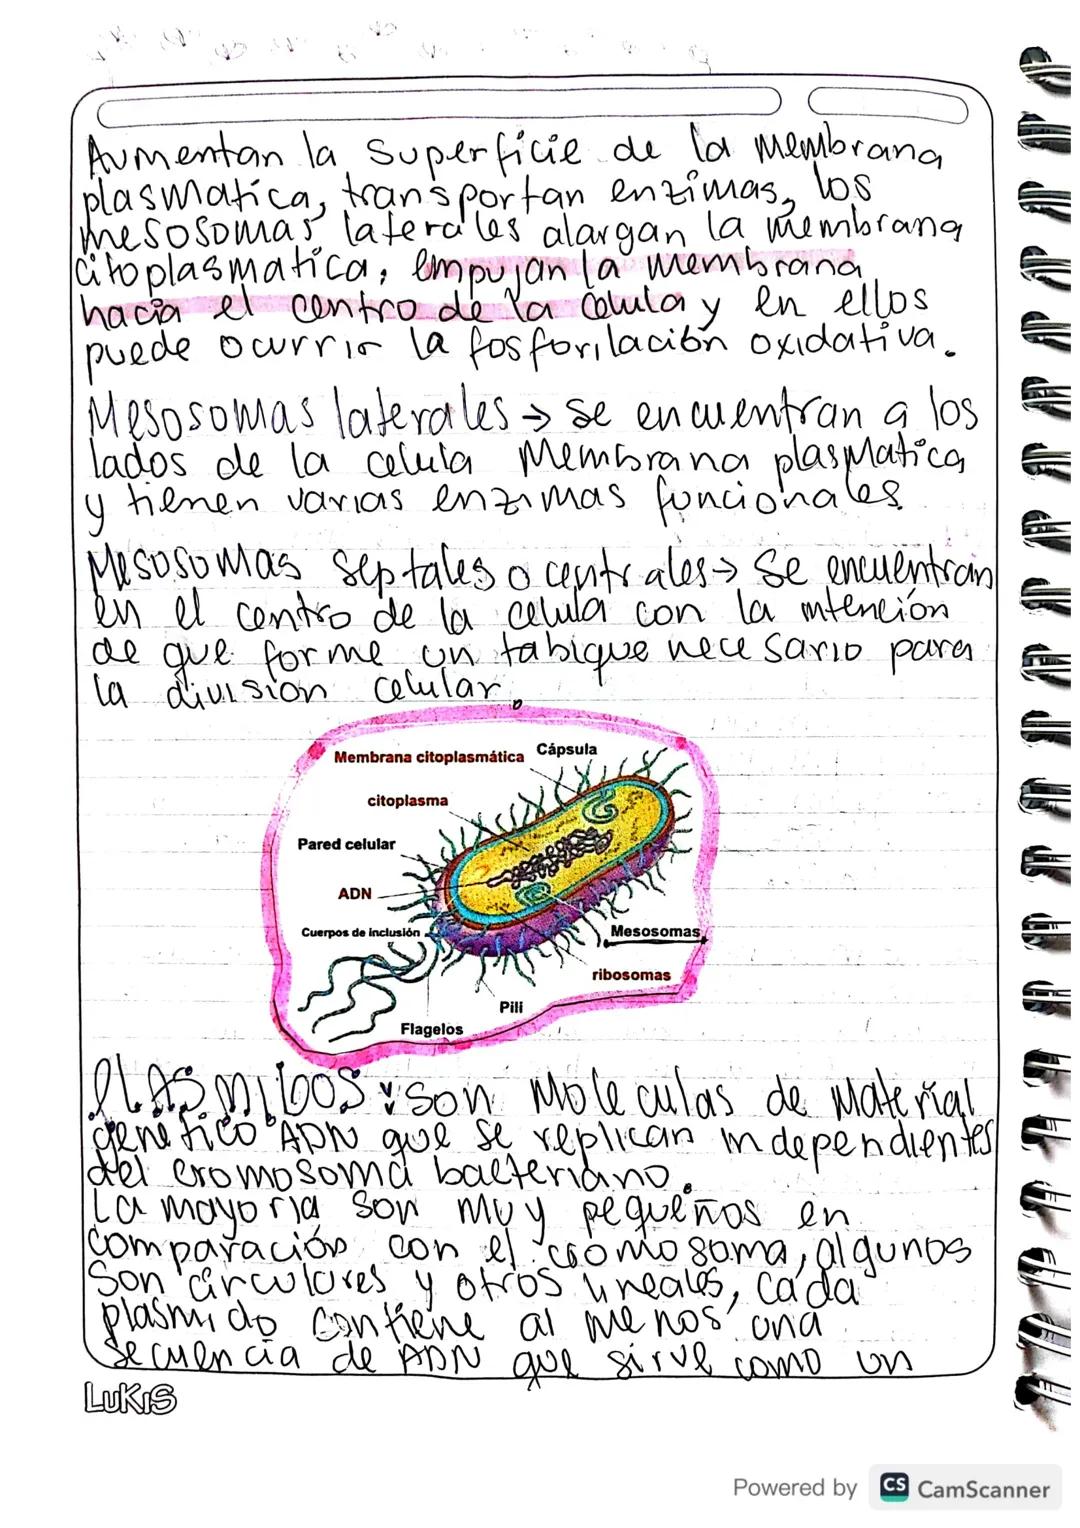 Aumentan la superficie de la membrana
plasmatica, transportan enzimas, los
mesosomas laterales alargan la membrana
citoplasmatica, empujan la membrana
hacia el centro de la celula y en ellos
puede ocurrir la fosforilación oxidativa.
Mesosomas laterales → se encuentran a los
lados de la celula Membrana plasmatica
y tienen varias enzimas funcionales.
Mesosomas septales o centrales → Se encuentran
en el centro de la celula con la intención
de que forme un tabique necesario para
la division celular.
Membrana citoplasmática Cápsula
citoplasma
Pared celular
ADN
Cuerpos de inclusión
Mesosomas
ribosomas
Pili
Flagelos
PLASMIDOS: son Moleculas de Material
genetico ADN que se replican independientes
del cromosoma bacteriano.
La mayoria son muy pequeños en
comparación con el cromosoma, algunos
son circulares y otros lineales, cada
plasmido contiene al menos una
secuencia de ADN que sirve como un
LUKIS
Powered by CS CamScanner